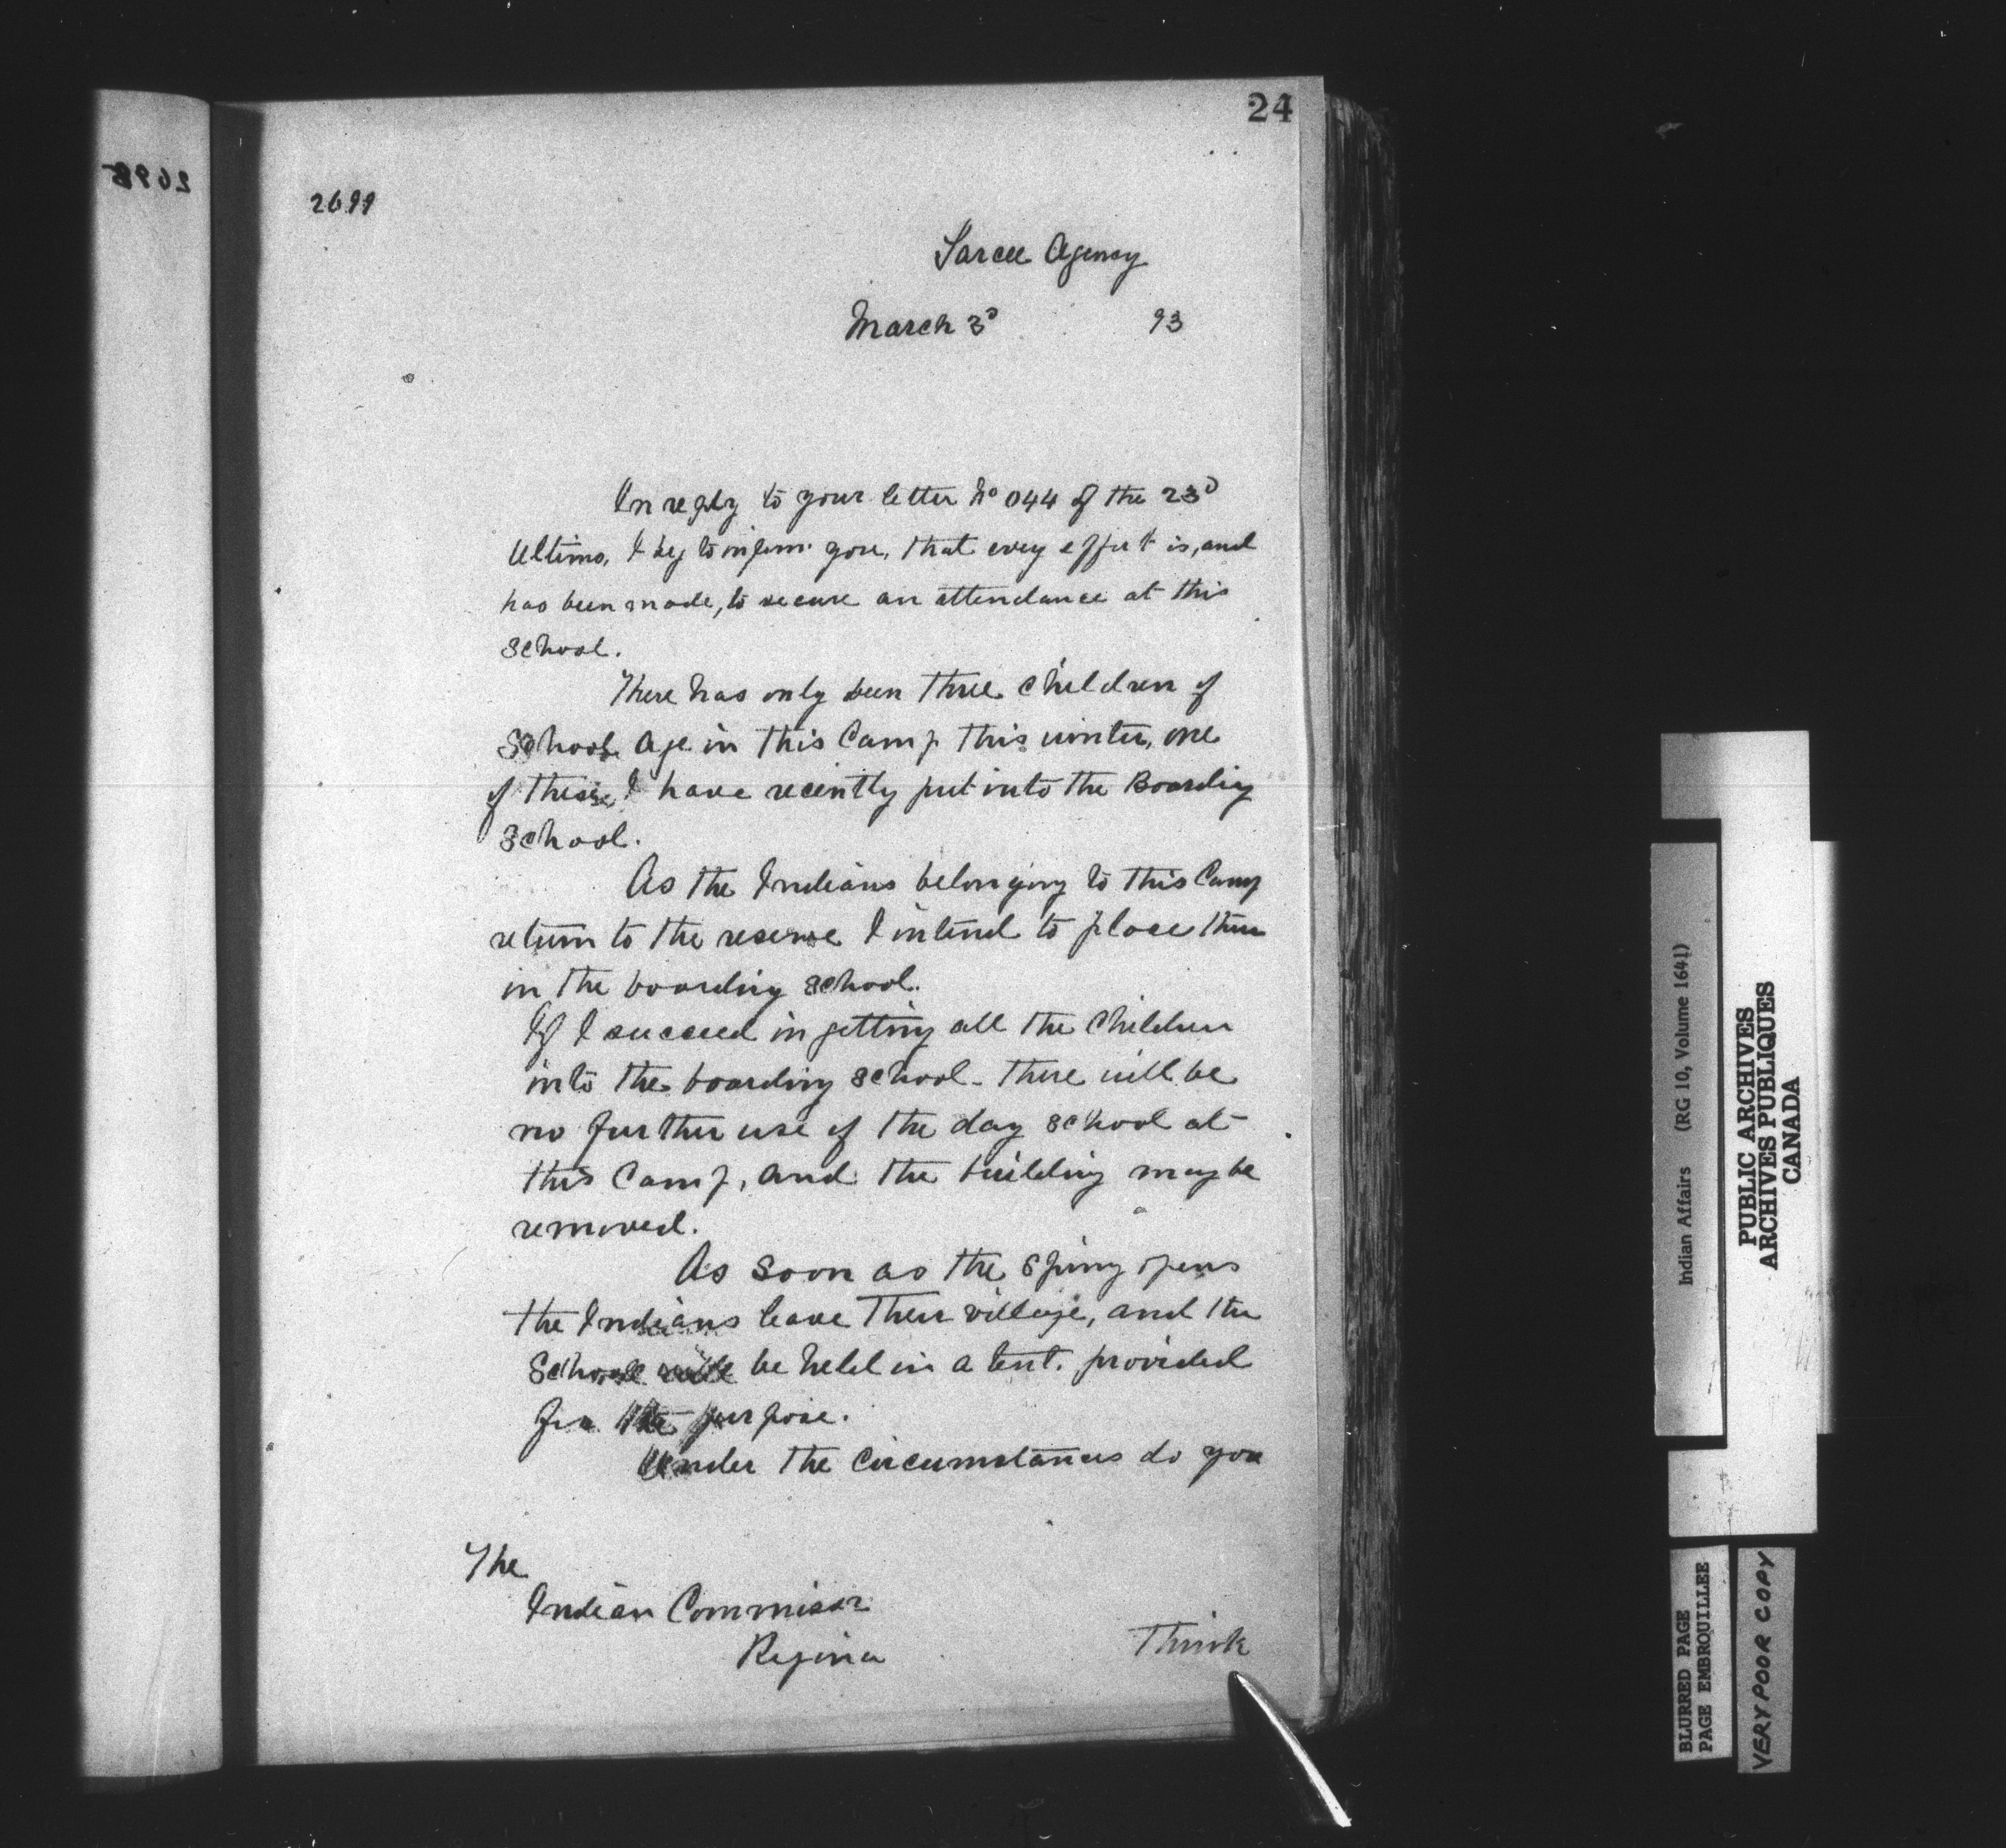 24
2698
2699
Sarcee Agency
March 3d 93
In reply to your letter No 044 of the 23d
Ultimo, I beg to inform you, that every effort is, and
has been made, to secure an attendance at this
School.
There has only been three children of
School age in this Camp this winter, one
of these I have recently put into the Boarding
School.
As the Indians belonging to this Camp
return to the reserve I intend to place them
in the boarding school.
If I succeed in getting all the Children
into the boarding school - there will be
no further use of the day school at
this Camp, and the building may be
removed.
As soon as the Spring opens
the Indians leave their village, and the
School will be held in a tent. provided
for the purpose.
Under the Circumstances do you
The
Indian Commissr
Regina
Think
Indian Affairs (RG 10, Volume 1641)
PUBLIC ARCHIVES
ARCHIVES PUBLIQUES
CANADA
BLURRED PAGE
PAGE EMBROUILLEE
VERY POOR COPY